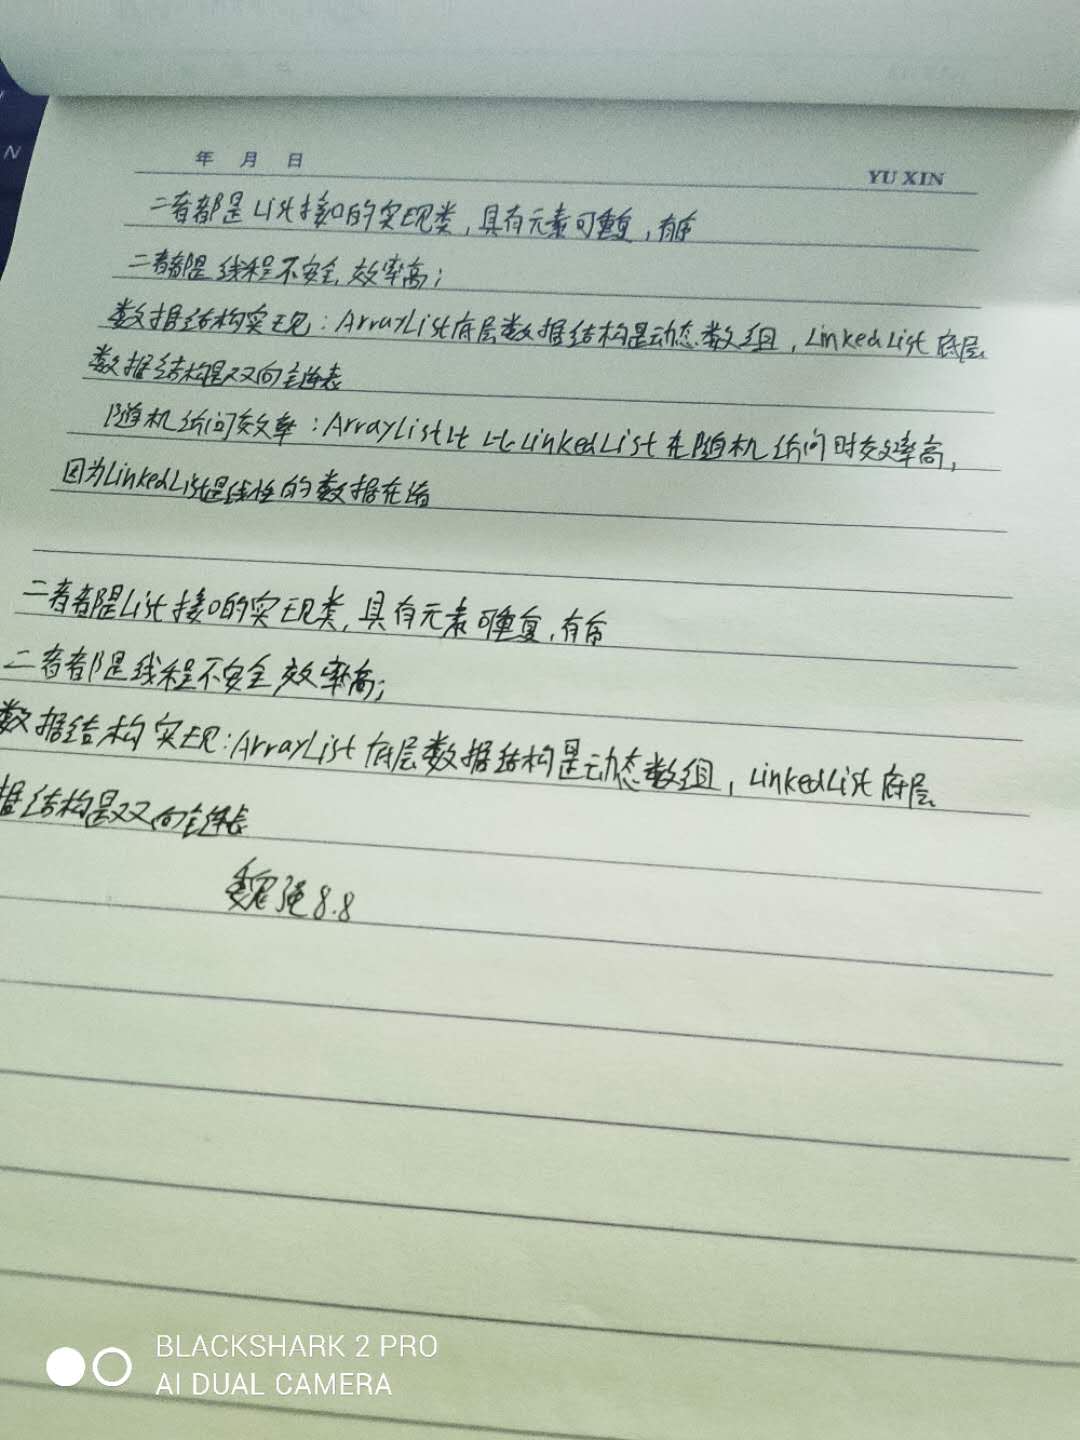 年 月 日
YU XIN
二者都是List接口的实现类,具有元素可重复,有序
二者都是线程不安全,效率高;
数据结构实现:ArrayList底层数据结构是动态数组,LinkedList底层
数据结构是双向链表
随机访问效率:ArrayList比 比LinkedList在随机访问时效率高,
因为LinkedList是线性的数据存储
二者都是List接口的实现类,具有元素可重复,有序
二者都是线程不安全,效率高;
数据结构实现:ArrayList底层数据结构是动态数组,LinkedList底层
据结构是双向链表
魏强8.8
N
BLACKSHARK 2 PRO
AI DUAL CAMERA